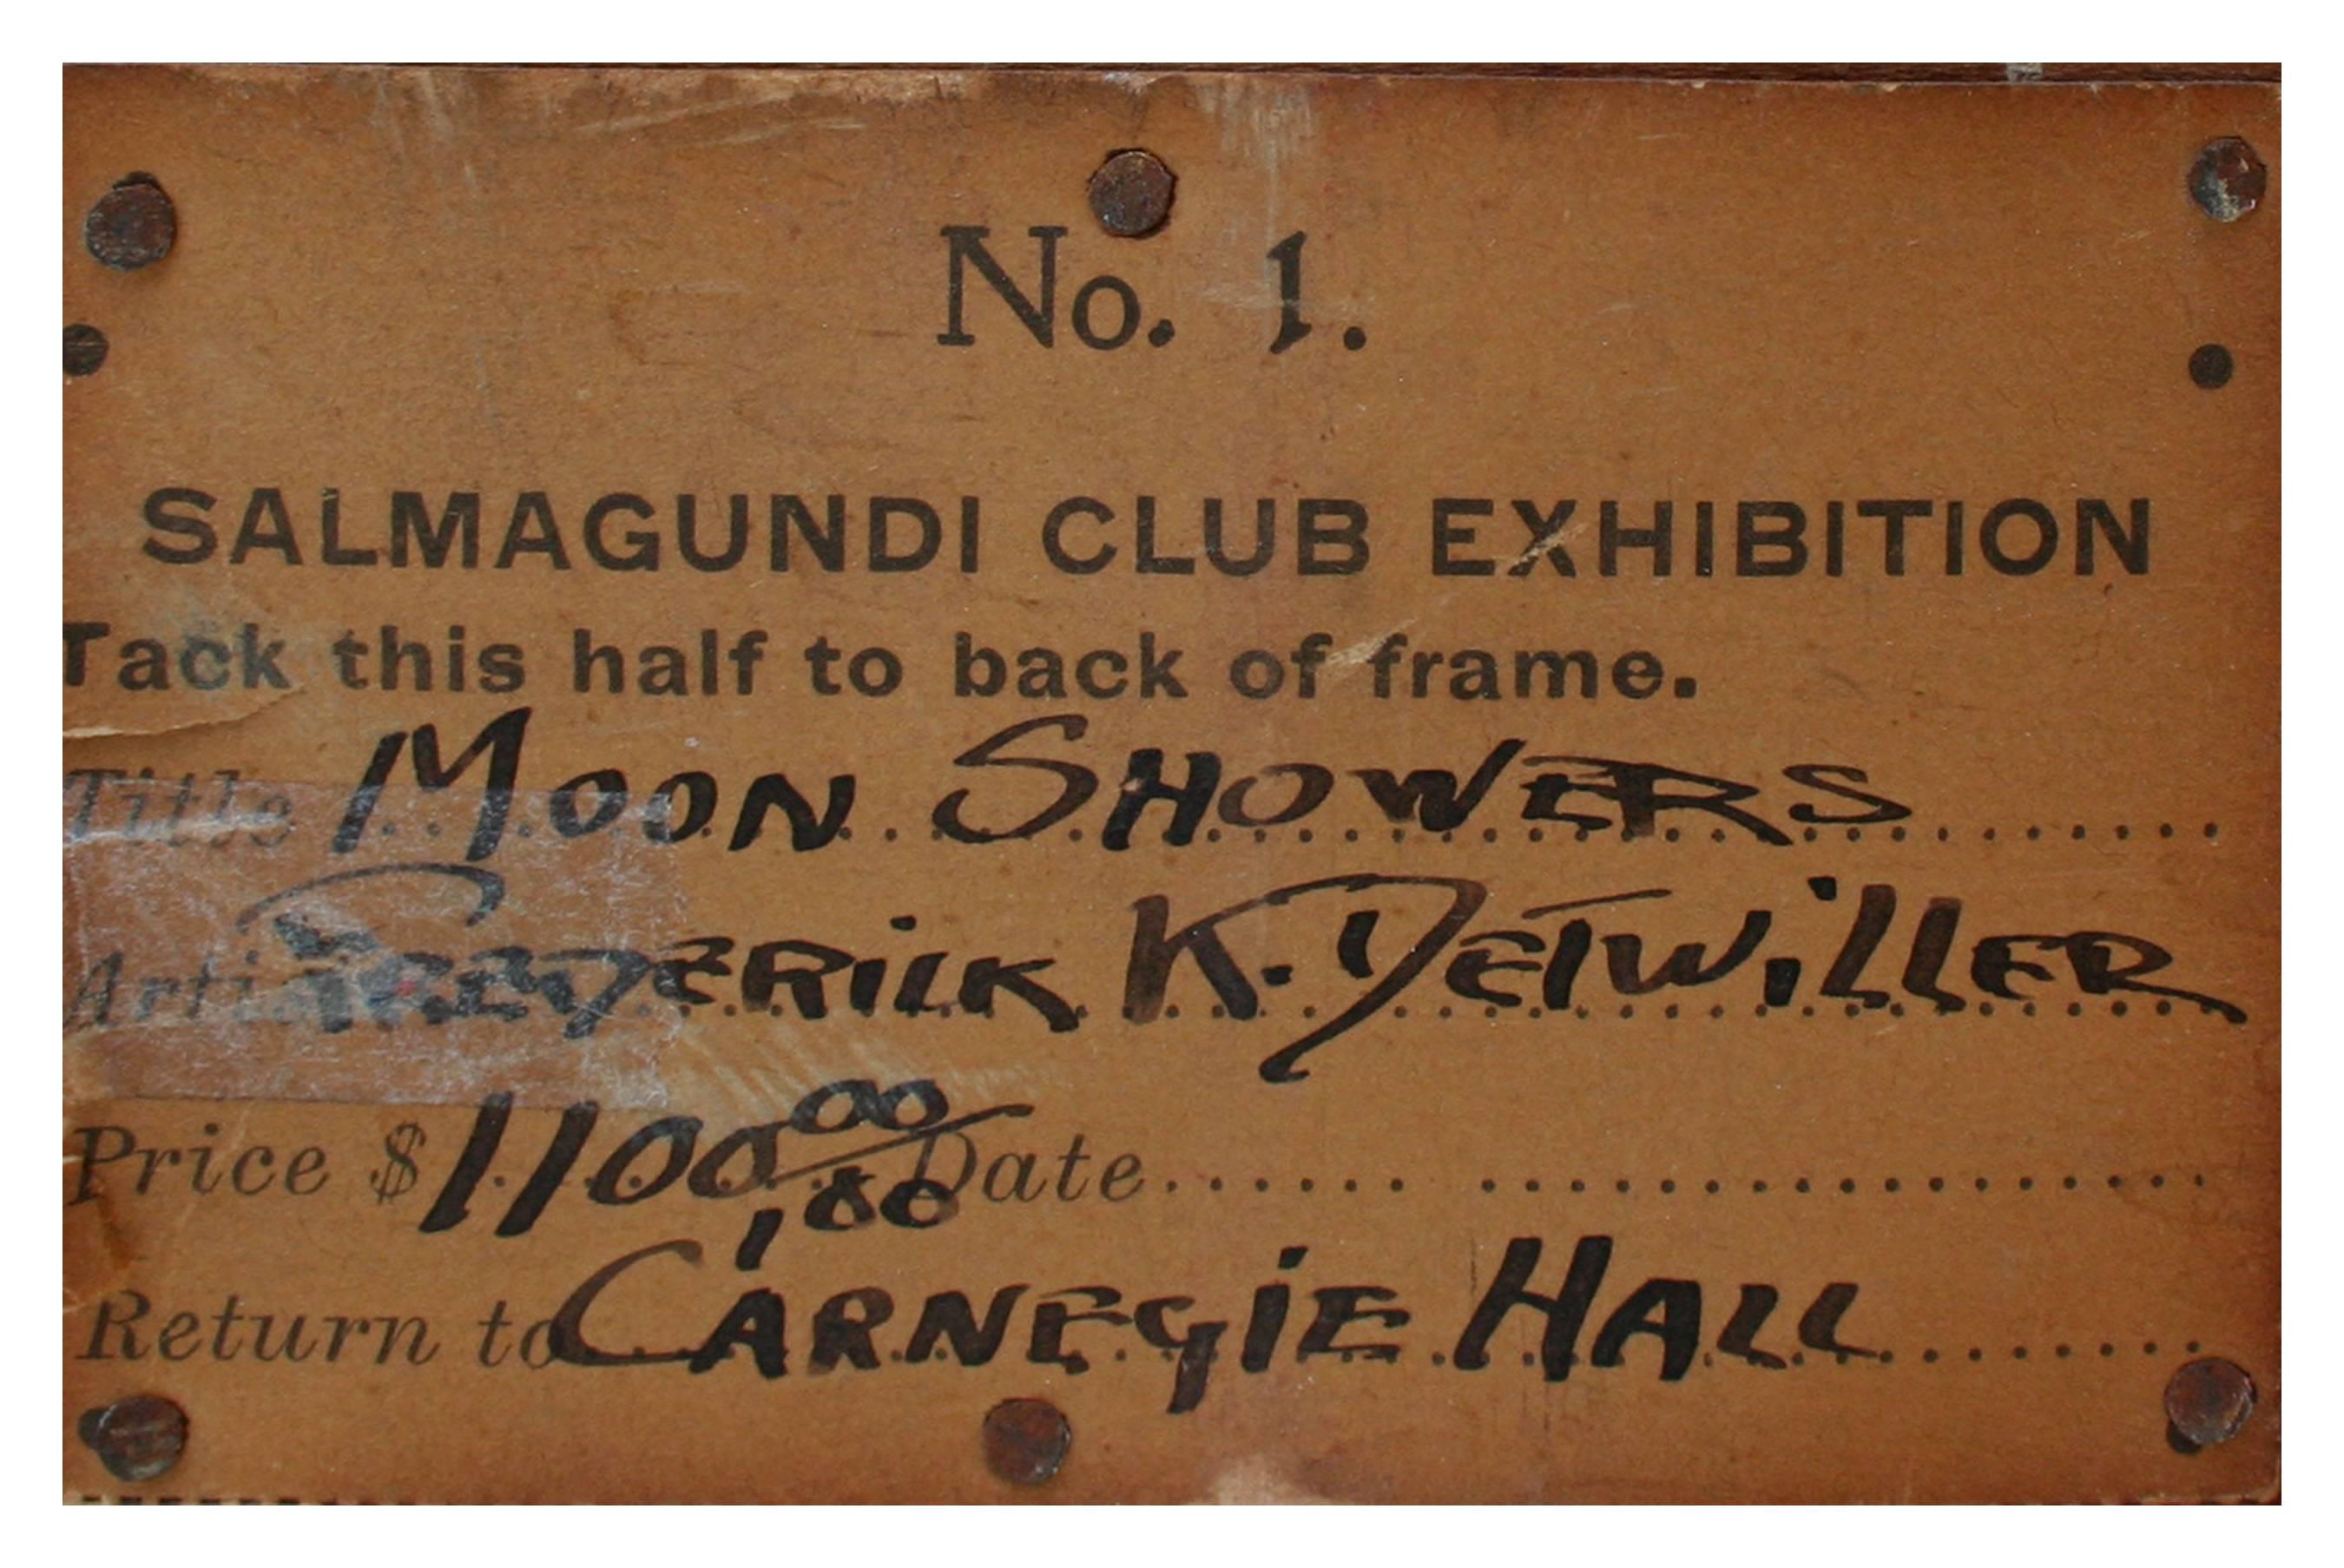 No. 1.
SALMAGUNDI CLUB EXHIBITION
Tack this half to back of frame.
Title MOON SHOWERS
Artist FREDERICK K. DETWILLER
Price $1100 00/100 Date
Return to CARNEGIE HALL